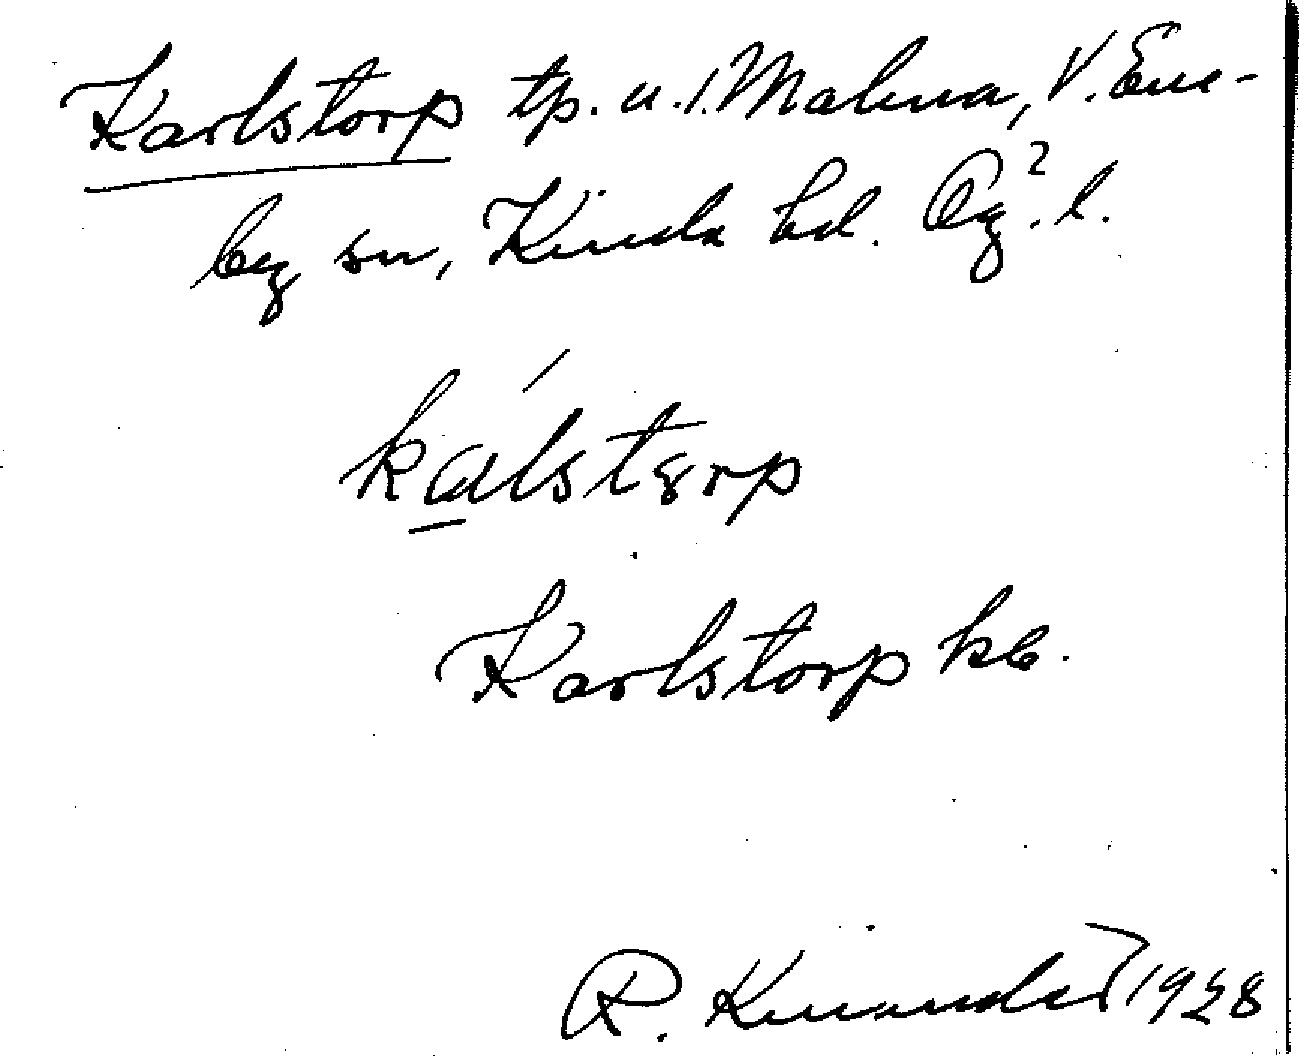 Karlstorp tp. u. Malma, V. Ene-
by sn, Kinda hd. Ög. l.
kálstɐrp
Karlstorp kb.
R. Kinander 1928